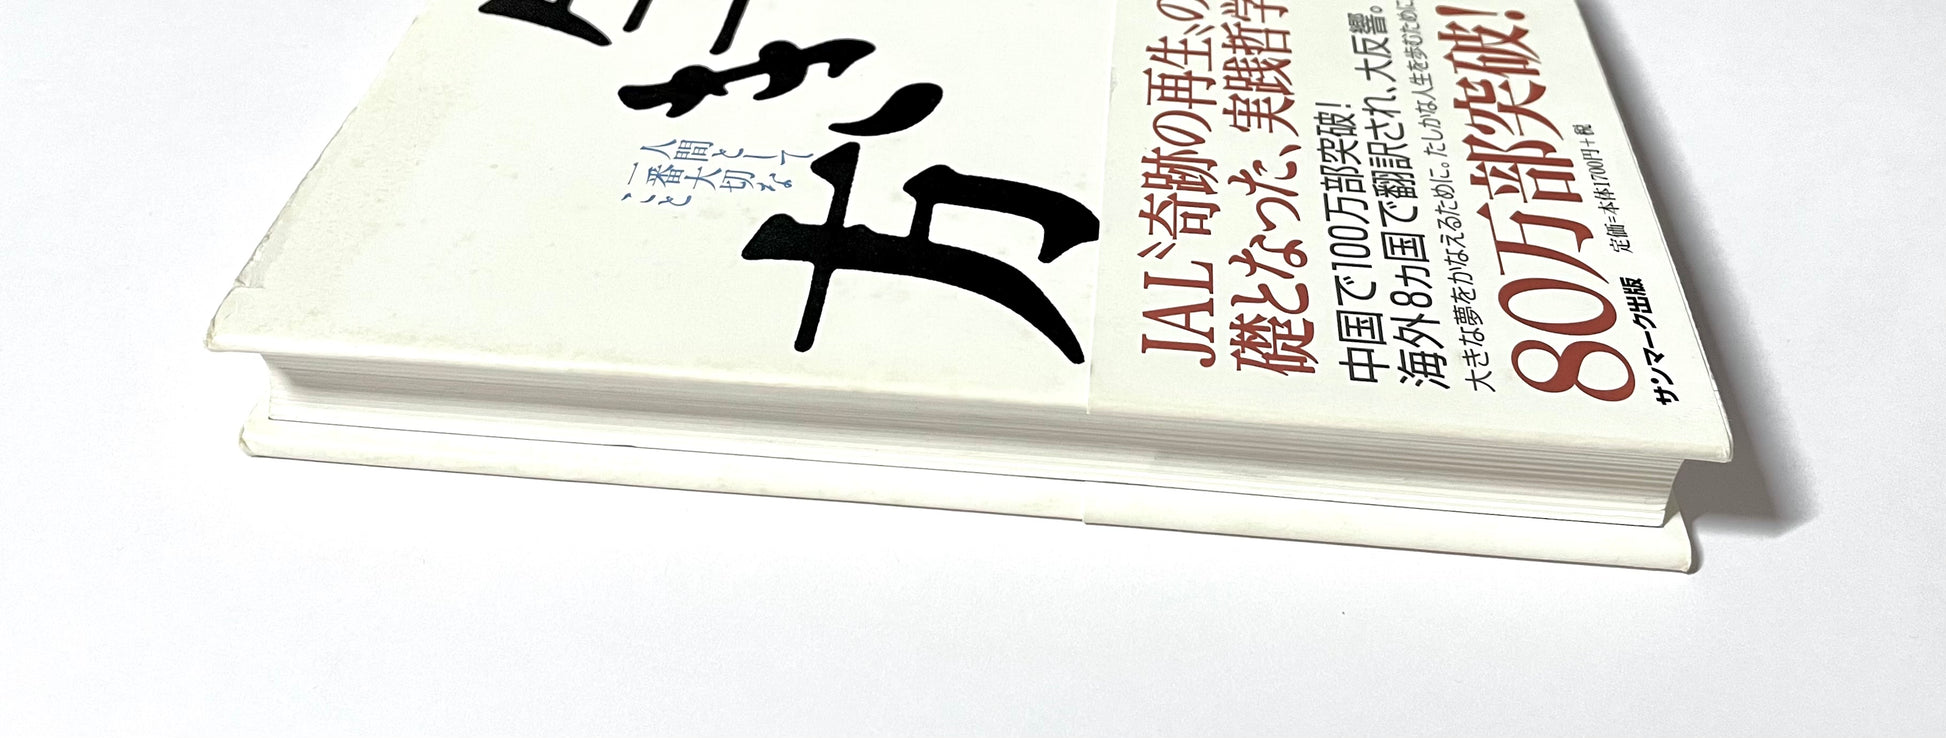 生き方
人間として
一番大切な
こと
JAL〝奇跡の再生〟の
礎となった、実践哲学
中国で100万部突破!
海外8カ国で翻訳され、大反響。
大きな夢をかなえるために。たしかな人生を歩むために
80万部突破!
定価=本体1700円+税
サンマーク出版